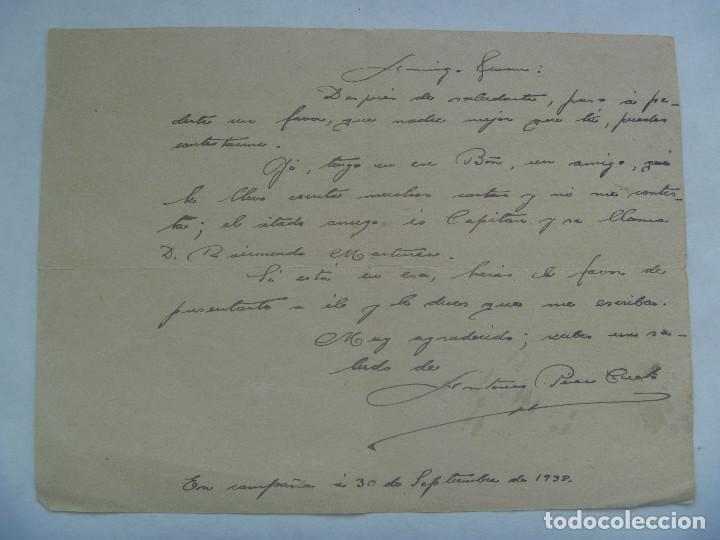 Domingo
Después de saludarte, paso á pe-
dirte un favor, que nadie mejor que tú, puedes
contestarme.
Yó, tengo en ese Bón, un amigo, que
le llevo escrita muchas cartas y nó me contes-
ta; el citado amigo es Capitán y se llama
D. Raimundo Martinez.
Sí está en esa, harás el favor de
presentarte a él y le dices que me escriba.
Muy agradecido; recibe un sa-
ludo de
Antonio Perez
En campaña á 30 de Septiembre de 1938.
todocoleccion
todocoleccion.net